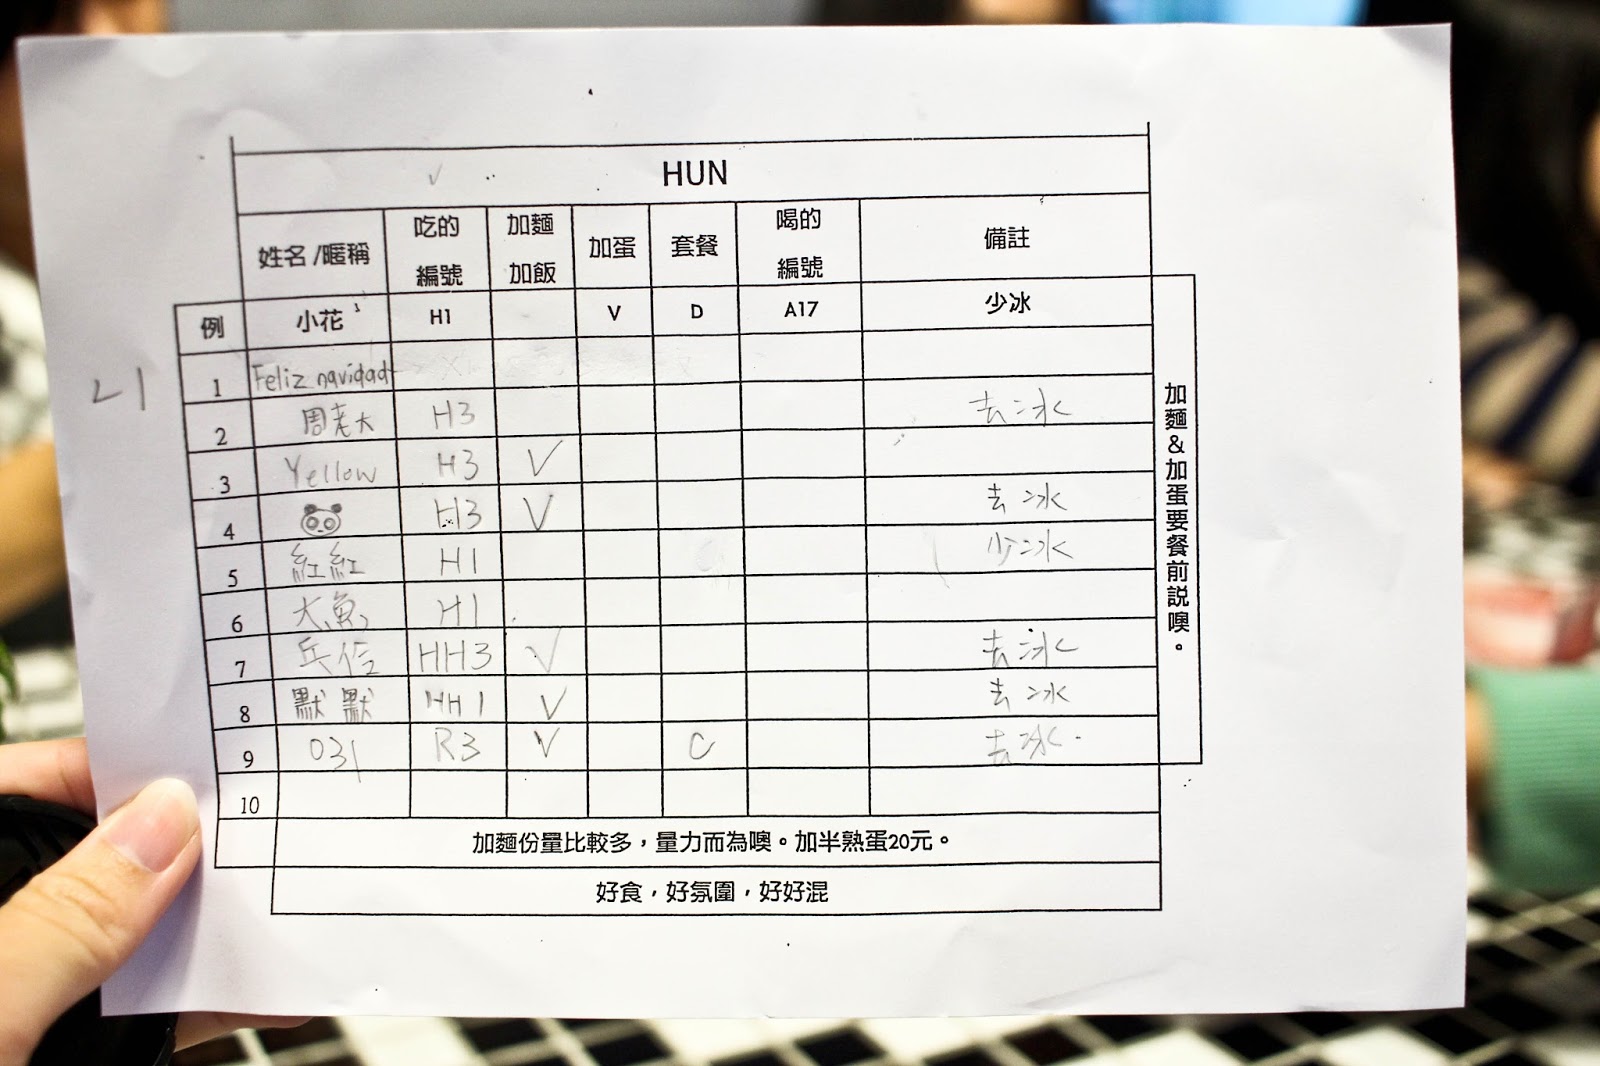 HUN
姓名/暱稱 吃的編號 加麵加飯 加蛋 套餐 喝的編號 備註
例 小花 H1 V D A17 少冰
1 Feliz navidad
2 周老大 H3 去冰
3 Yellow H3 V
4 H3 V 去冰
5 紅紅 H1 少冰
6 大魚 H1
7 兵 HH3 V 去冰
8 默默 HH1 V 去冰
9 031 R3 V C 去冰
10
加麵份量比較多，量力而為噢。加半熟蛋20元。
好食，好氛圍，好好混
加麵&加蛋要餐前説噢。
L1